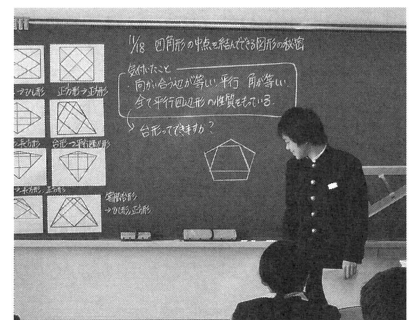 11/18 四角形の中点を結んでできる図形の秘密
気付いたこと
向かい合う辺が等しい 平行 角が等しい
全て平行四辺形の性質をもっている
台形ってできますか?
正方形→正方形
台形→平行四辺形
等脚台形
→ひし形, 正方形